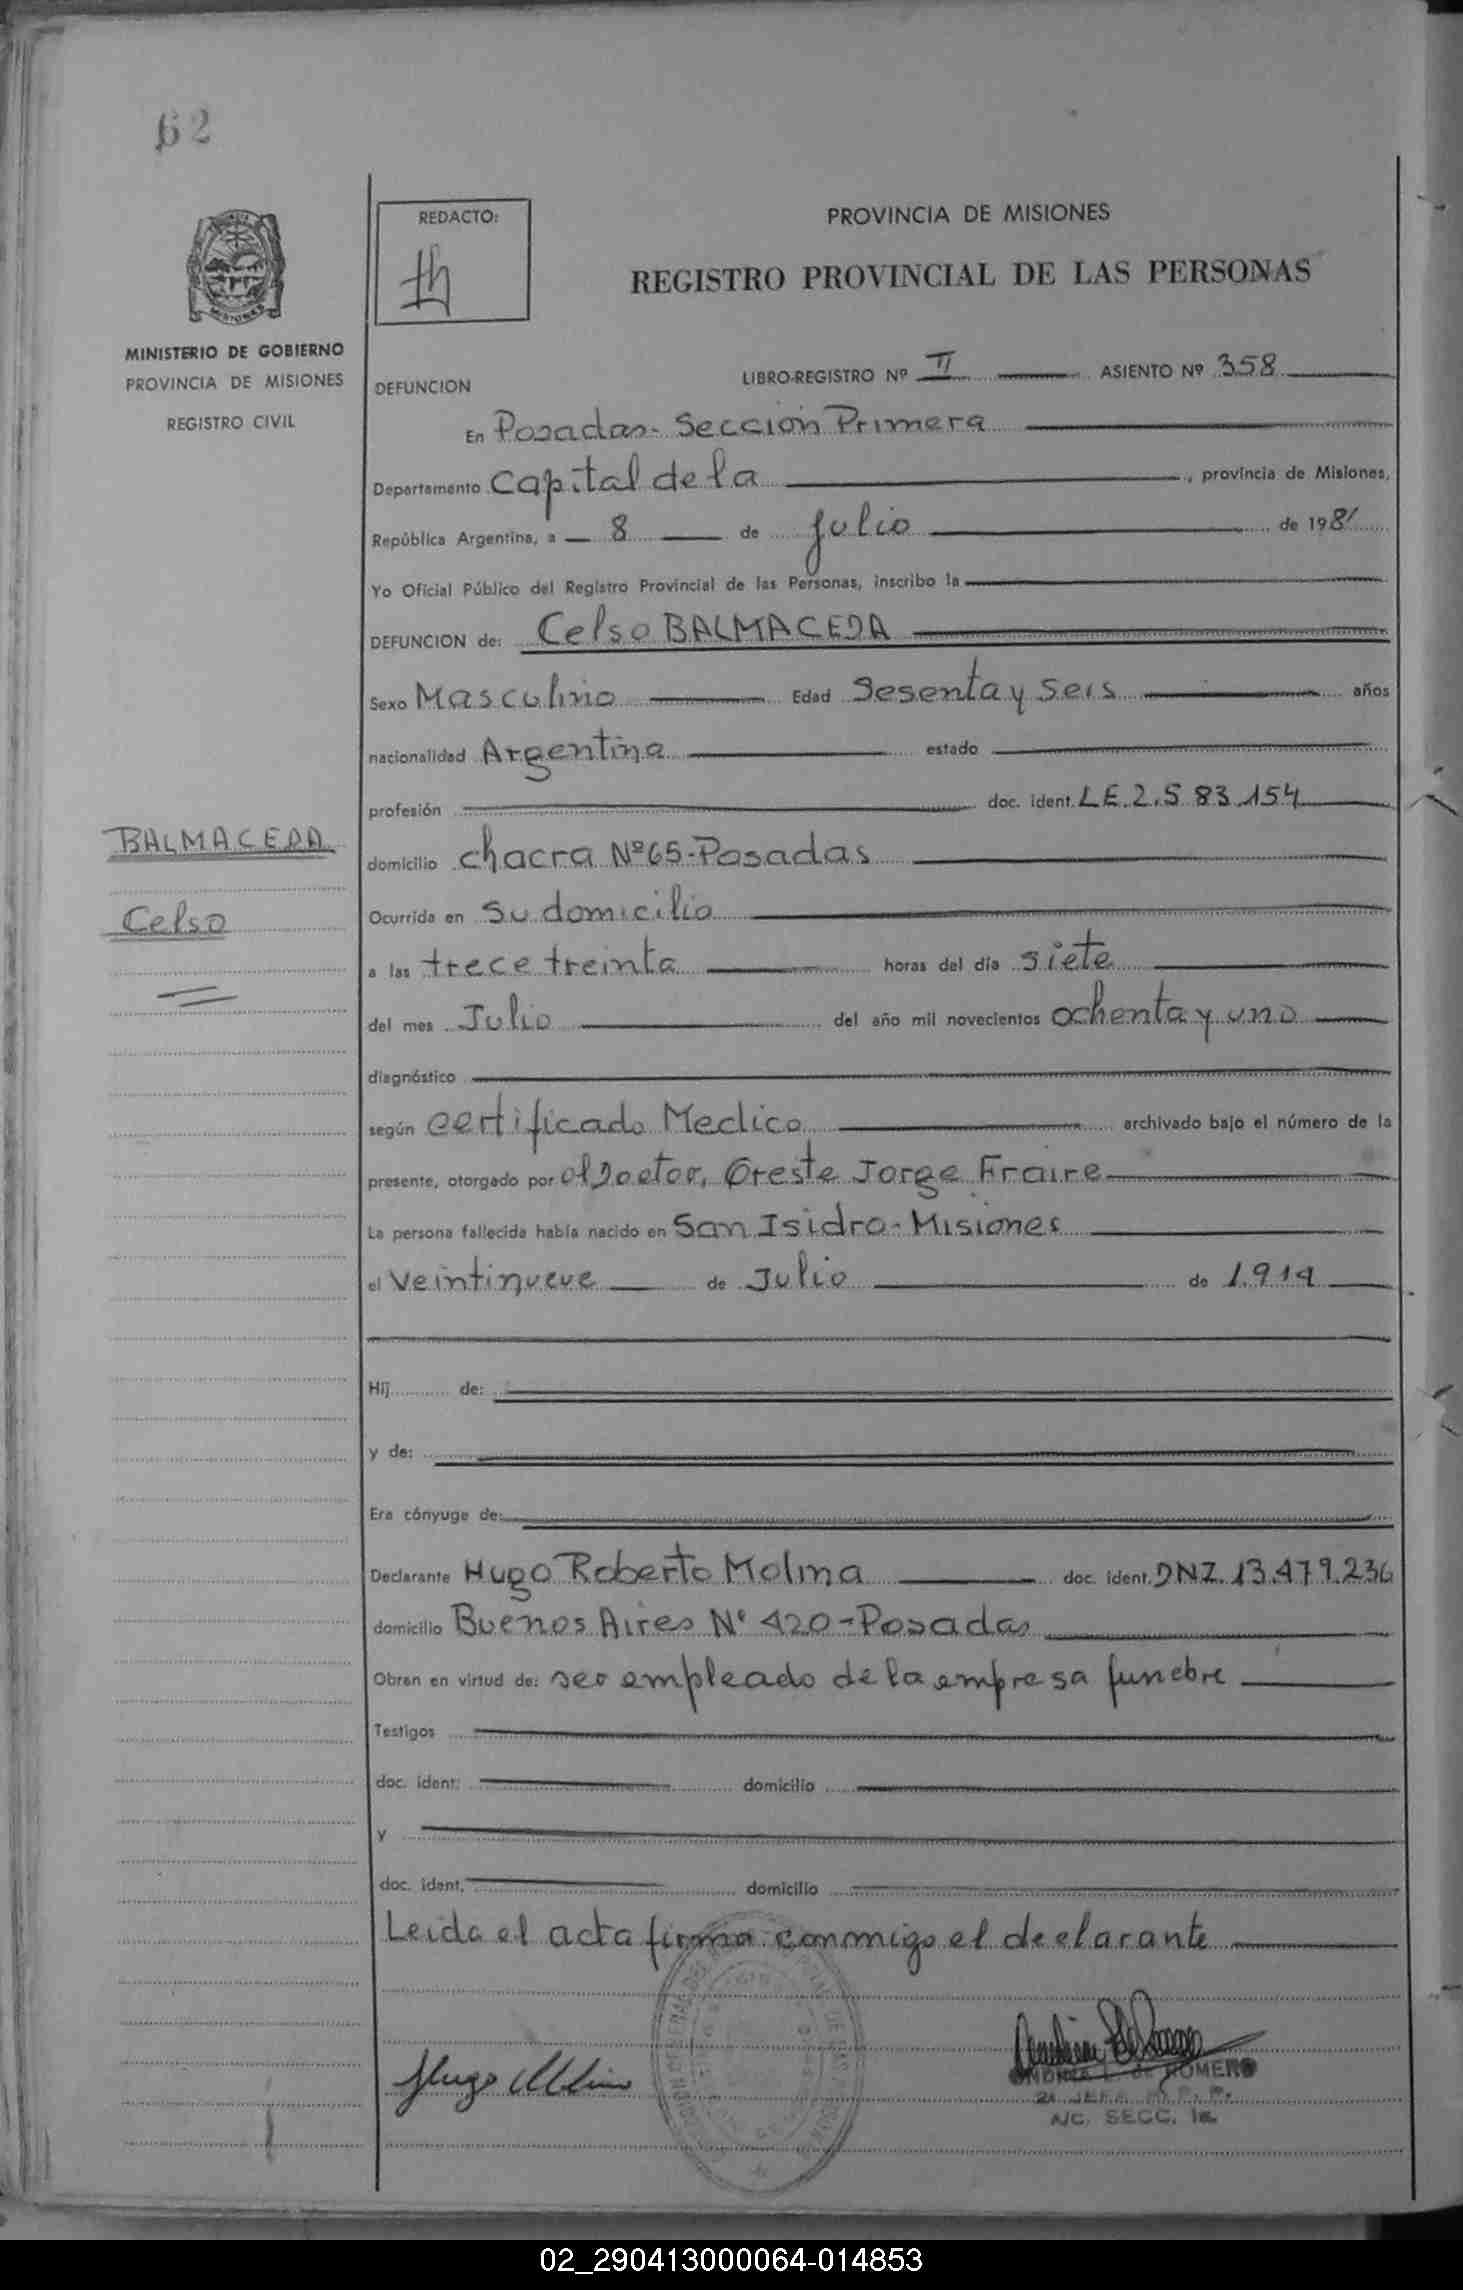 62
REDACTO:
PROVINCIA DE MISIONES
REGISTRO PROVINCIAL DE LAS PERSONAS
MINISTERIO DE GOBIERNO
PROVINCIA DE MISIONES
REGISTRO CIVIL
DEFUNCION LIBRO-REGISTRO Nº II ASIENTO Nº 358
En Posadas - Sección Primera
Departamento Capital de la, provincia de Misiones,
República Argentina, a 8 de Julio de 1981
Yo Oficial Público del Registro Provincial de las Personas, inscribo la
DEFUNCION de: Celso BALMACEDA
Sexo Masculino Edad Sesenta y seis años
nacionalidad Argentina estado
profesión doc. ident. L.E. 2.583.154
BALMACEDA
domicilio chacra Nº 65-Posadas
Celso
Ocurrida en su domicilio
a las trece treinta horas del día siete
del mes Julio del año mil novecientos ochenta y uno
diagnóstico
según certificado Medico archivado bajo el número de la
presente, otorgado por el Doctor, Oreste Jorge Fraire
La persona fallecida había nacido en San Isidro - Misiones
el Veintinueve de Julio de 1.914
Hij de:
y de:
Era cónyuge de:
Declarante Hugo Roberto Molina doc. ident. DNI. 13.479.236
domicilio Buenos Aires Nº 420 - Posadas
Obran en virtud de: ser empleado de la empresa funebre
Testigos
doc. ident: domicilio
y
doc. ident. domicilio
Leida el acta firma conmigo el declarante
Hugo Molina
DE ROMERO
A/C. SECC. 1a.
02_290413000064-014853